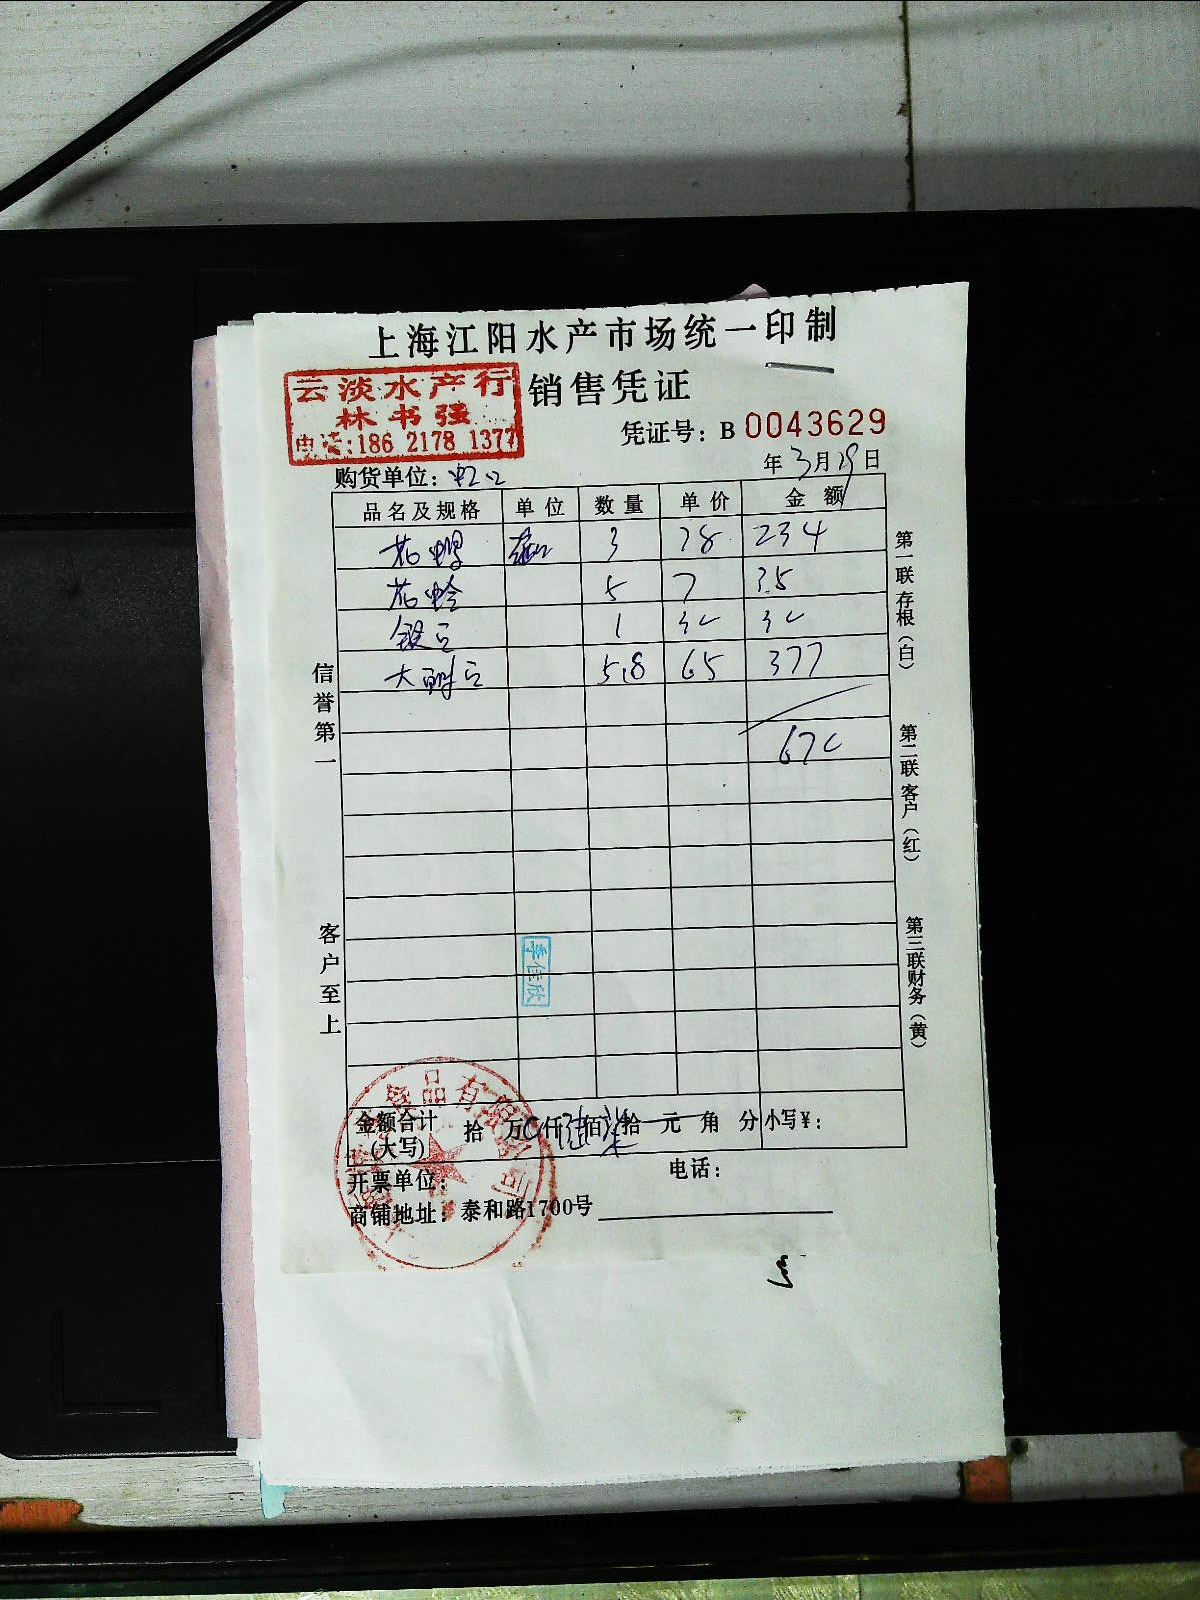 上海江阳水产市场统一印制
云淡水产行
林书强
电话:186 2178 1377
销售凭证
凭证号: B 0043629
年3月29日
购货单位: 虹口
品名及规格 单位 数量 单价 金额
3 78 234
花蛤 5 7 35
1
5.8 65 377
670
信誉第一
客户至上
第一联存根(白)
第二联客户(红)
第三联财务(黄)
李佳欣
食品有限公司
金额合计(大写) 拾 万 仟 陆 佰 柒 拾 元 角 分 小写¥:
开票单位: 电话:
商铺地址: 泰和路1700号